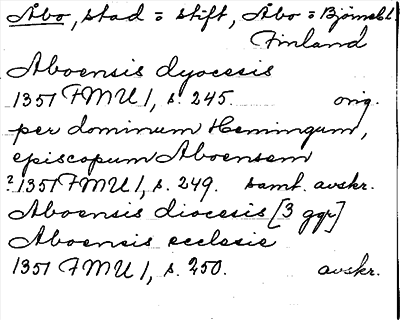 Åbo, stad = stift, Åbo = Björneb. l.
Finland
Aboensis dyocesis
1351 FMU 1, s. 245. orig.
per dominum Hemingum,
episcopum Aboensem
? 1351 FMU 1, s. 249. samt. avskr.
Aboensis diocesis [3 ggr]
Aboensis ecclesie
1351 FMU 1, s. 250. avskr.